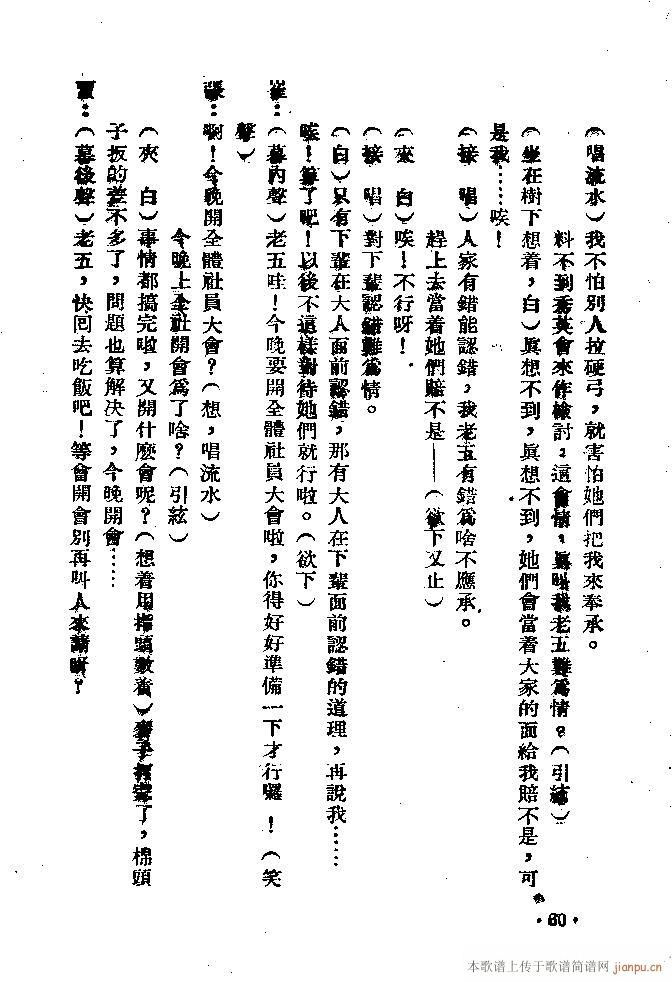 （唱流水）我不怕別人拉硬弓，就害怕她們把我來奉承。
料不到秀英會來作檢討，這會情，眞叫我老五難爲情？（引流）
（坐在樹下想着，白）眞想不到，眞想不到，她們會當着大家的面給我賠不是，可
是我……唉！
（接 唱）人家有錯能認錯，我老五有錯爲啥不應承。
趕上去當着她們賠不是——（欲下又止）
（夾 白）唉！不行呀！
（接 唱）對下輩認錯難爲情。
（白）只有下輩在大人面前認錯，那有大人在下輩面前認錯的道理，再說我……
唉！算了吧！以後不這樣對待她們就行啦。（欲下）
崔：（幕內聲）老五哇！今晚要開全體社員大會啦，你得好好準備一下才行囉！（笑
聲）
張：啊！今晚開全體社員大會？（想，唱流水）
今晚上全社開會爲了啥？（引絃）
（夾 白）事情都搞完啦，又開什麽會呢？（想着用指頭數着）麥子打完了，棉頭
子扳的差不多了，問題也算解决了，今晚開會……
賈：（幕後聲）老五，快回去吃飯吧！等會開會別再叫人來請呀？
·60·
本歌谱上传于歌谱简谱网 jianpu.cn